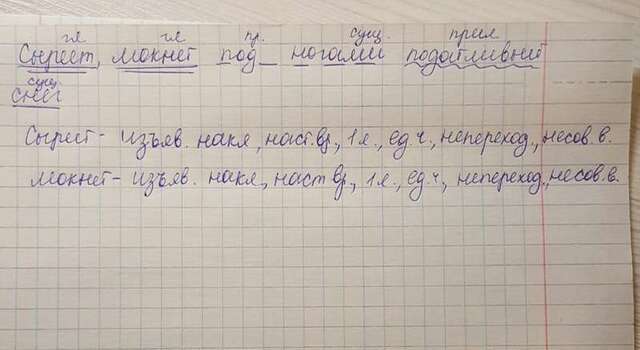 гл гл пр. сущ. прил
Сыреет, мокнет под ногами податливый
сущ.
снег
Сыреет - изъяв. накл., наст.вр., 1 л., ед.ч., непереход., несов.в.
Мокнет - изъяв. накл., наст вр., 1 л., ед.ч., непереход., несов.в.